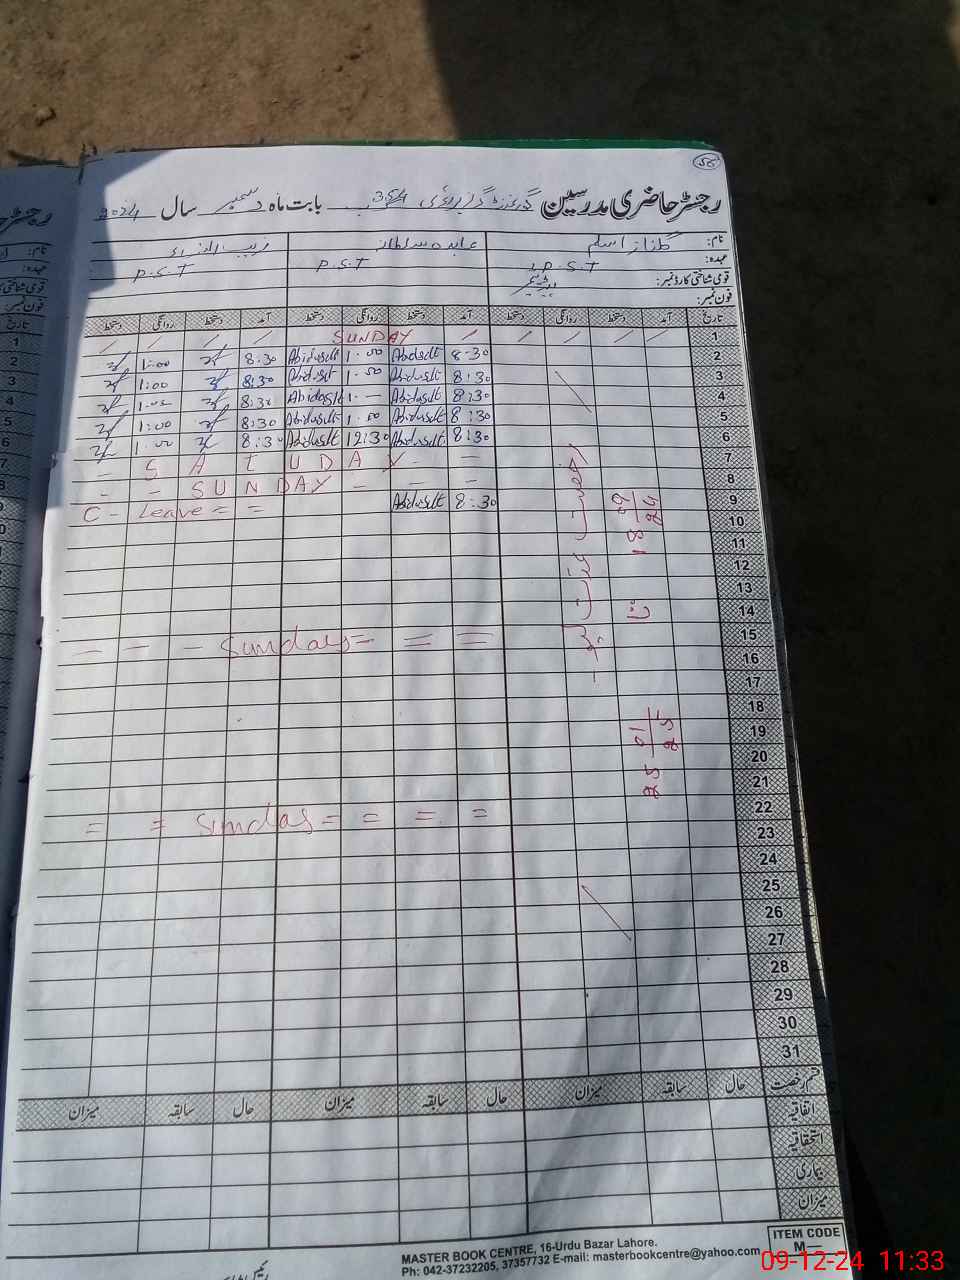 56
رجسٹر حاضری مدرسین گورنمنٹ گرلز 354 بابت ماہ دسمبر سال 2024
نام: گلناز اسلم عابدہ سلطانہ
عہدہ: P.S.T P.S.T P.S.T
قومی شناختی کارڈ نمبر:
فون نمبر:
تاریخ آمد دستخط روانگی دستخط آمد دستخط روانگی دستخط آمد دستخط روانگی دستخط
1 SUNDAY
2 8:30 Abidasdt 1.00 Abidasdt 8:30 1:00
3 8:30 Abidasdt 1.00 Abidasdt 8:30 1:00
4 8:30 Abidasdt 1.— Abidasdt 8:30 1:00
5 8:30 Abidasdt 1.00 Abidasdt 8:30 1:00
6 8:30 Abidasdt 12:30 Abidasdt 8:30 1:00
7 - S A T U D A Y - =
8 - - S U N D A Y - - -
9 8:30 Abidasdt C - Leave = =
10
11
12
13
14
15 - - - Sunday = = =
16
17
18
19
20
21
22 = = Sunday = = = =
23
24
25
26
27
28
29
30
31
رخصت
18 09 24
تا
25 01 25
قسم رخصت حال سابقہ میزان حال سابقہ میزان حال سابقہ میزان
اتفاقیہ
استحقاقیہ
بیماری
میزان
ITEM CODE
M—
MASTER BOOK CENTRE, 16-Urdu Bazar Lahore.
Ph: 042-37232205, 37357732 E-mail: masterbookcentre@yahoo.com
09-12-24 11:33